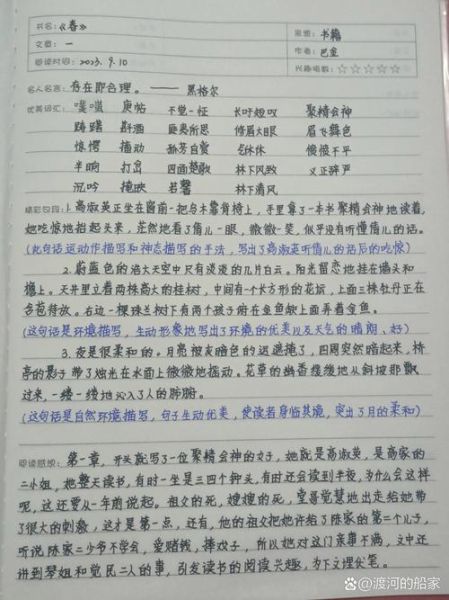 书名:《春》 类型: 书籍
文章: 一 作者: 巴金
阅读时间: 2023. 9.10 兴趣指数: ☆☆☆☆☆
名人名言: 存在即合理。 —— 黑格尔
优美词汇: 嘆嗞 庚帖 不觉一怔 长吁短叹 聚精会神
踌躇 斟酒 匪夷所思 修眉大眼 眉飞舞色
惊愕 摇动 孤芳自赏 气休休 愤愤不平
半晌 打岔 四面楚歌 林下风致 义正辞严
沉吟 掩映 若馨 林下清风
精彩句段: 1.高淑英正坐在窗前一把乌木靠背椅上,手里拿了一本书聚精会神地读着,
她吃惊地抬起头来,茫然地看了倩儿一眼,微微一笑,似乎没有听懂倩儿的话。
(此句话运动作描写和神态描写的手法,写出了高淑英听倩儿的话后的吃惊)
2.蔚蓝色的浩大天空中只有淡淡的几片白云。阳光留恋地挂在墙头和
檐上。天井里立着两株高大的桂树,中间有一个长方形的花坛,上面三株牡丹正在
含苞待放。右边一棵珠兰树下有两个孩子俯在金鱼缸上面弄着金鱼。
(这句话是环境描写,生动形象地写出了环境的优美以及天气的晴朗、好)
3.夜是很柔和的。月亮被灰暗色的云遮掩了,四周突然暗起来,桥
亭的影子带了烛光在水面上微微地摇动。花草的幽香缓缓地从斜坡那飘
过来,一缕一缕地沁入了人的肺腑。
(这句话是自然环境描写,句子生动优美,使读者身临其境,突出了月的柔和)
阅读感想: 第一章,开头就写了一位聚精会神的女子,她就是高淑英,是高家的
二小姐,她整天读书,有时一坐是三四个钟头,有时还会读到半夜,为什么会这样
呢,这还要从一年前说起。祖父的死,嫂嫂的死,堂哥觉慧地出走给她带
了很大的刺激,这才是第一点,还有,他的祖父把她许给了陈家的第二个儿子,
听说陈家二少爷不学会,爱赌钱,捧戏子,所以她对这门亲事不满,文中还
讲到琴姐和觉民二人的事,引发读书的阅读兴趣,为下文埋伏笔。
@渡河的船家